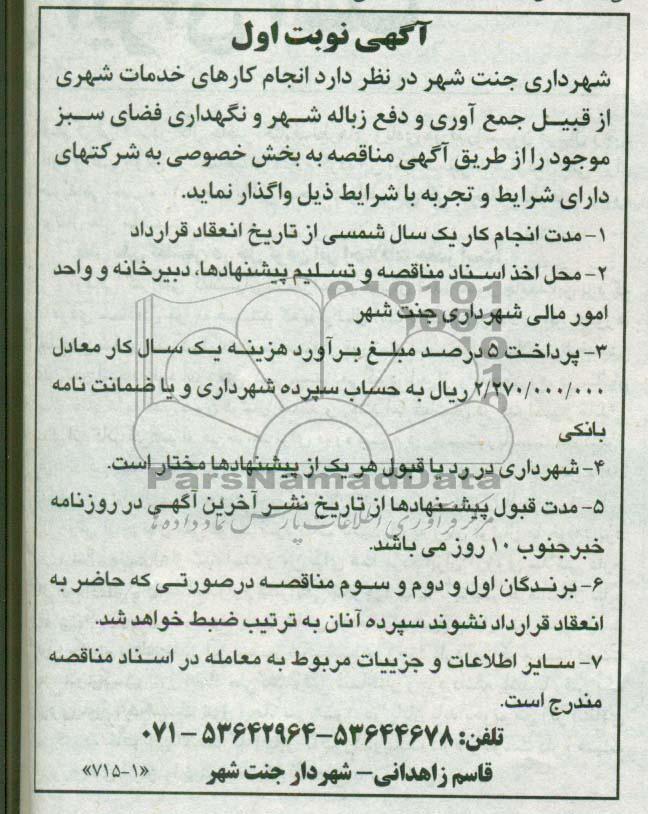 آگهی نوبت اول
شهرداری جنت شهر در نظر دارد انجام کارهای خدمات شهری
از قبیل جمع آوری و دفع زباله شهر و نگهداری فضای سبز
موجود را از طریق آگهی مناقصه به بخش خصوصی به شرکتهای
دارای شرایط و تجربه با شرایط ذیل واگذار نماید.
۱- مدت انجام کار یک سال شمسی از تاریخ انعقاد قرارداد
۲- محل اخذ اسناد مناقصه و تسلیم پیشنهادها، دبیرخانه و واحد
امور مالی شهرداری جنت شهر
۳- پرداخت ۵ درصد مبلغ برآورد هزینه یک سال کار معادل
۲/۲۷۰/۰۰۰/۰۰۰ ریال به حساب سپرده شهرداری و یا ضمانت نامه
بانکی
۴- شهرداری در رد یا قبول هر یک از پیشنهادها مختار است.
۵- مدت قبول پیشنهادها از تاریخ نشر آخرین آگهی در روزنامه
خبرجنوب ۱۰ روز می باشد.
۶- برندگان اول و دوم و سوم مناقصه درصورتی که حاضر به
انعقاد قرارداد نشوند سپرده آنان به ترتیب ضبط خواهد شد.
۷- سایر اطلاعات و جزییات مربوط به معامله در اسناد مناقصه
مندرج است.
تلفن: ۵۳۶۴۴۶۷۸-۵۳۶۴۲۹۶۴ - ۰۷۱
قاسم زاهدانی- شهردار جنت شهر «۷۱۵-۱»
ParsNamadData
مرکز فرآوری اطلاعات پارس نماد داده ها